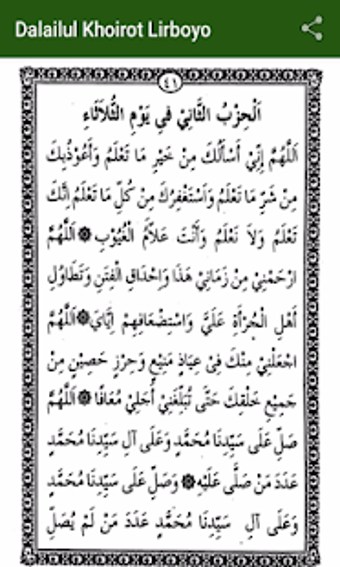 Dalailul Khoirot Lirboyo
٤١
اَلْحِزْبُ الثَّانِيْ فِي يَوْمِ الثُّلَاثَاءِ
اَللّٰهُمَّ إِنِّيْ أَسْأَلُكَ مِنْ خَيْرِ مَا تَعْلَمُ وَأَعُوْذُبِكَ
مِنْ شَرِّ مَا تَعْلَمُ وَاَسْتَغْفِرُكَ مِنْ كُلِّ مَا تَعْلَمُ اِنَّكَ
تَعْلَمُ وَلَا نَعْلَمُ وَأَنْتَ عَلَّامُ الْغُيُوْبِ ۞ اَللّٰهُمَّ
ارْحَمْنِيْ مِنْ زَمَانِيْ هٰذَا وَإِحْدَاقِ الْفِتَنِ وَتَطَاوُلِ
اَهْلِ الْجُرْأَةِ عَلَيَّ وَاسْتِضْعَافِهِمْ اِيَّايَ ۞ اَللّٰهُمَّ
اجْعَلْنِيْ مِنْكَ فِيْ عِيَاذٍ مَنِيْعٍ وَحِرْزٍ حَصِيْنٍ مِنْ
جَمِيْعِ خَلْقِكَ حَتَّى تُبَلِّغَنِيْ أَجَلِيْ مُعَافًا ۞ اَللّٰهُمَّ
صَلِّ عَلَى سَيِّدِنَا مُحَمَّدٍ وَعَلَى آلِ سَيِّدِنَا مُحَمَّدٍ
عَدَدَ مَنْ صَلَّى عَلَيْهِ ۞ وَصَلِّ عَلَى سَيِّدِنَا مُحَمَّدٍ
وَعَلَى آلِ سَيِّدِنَا مُحَمَّدٍ عَدَدَ مَنْ لَمْ يُصَلِّ